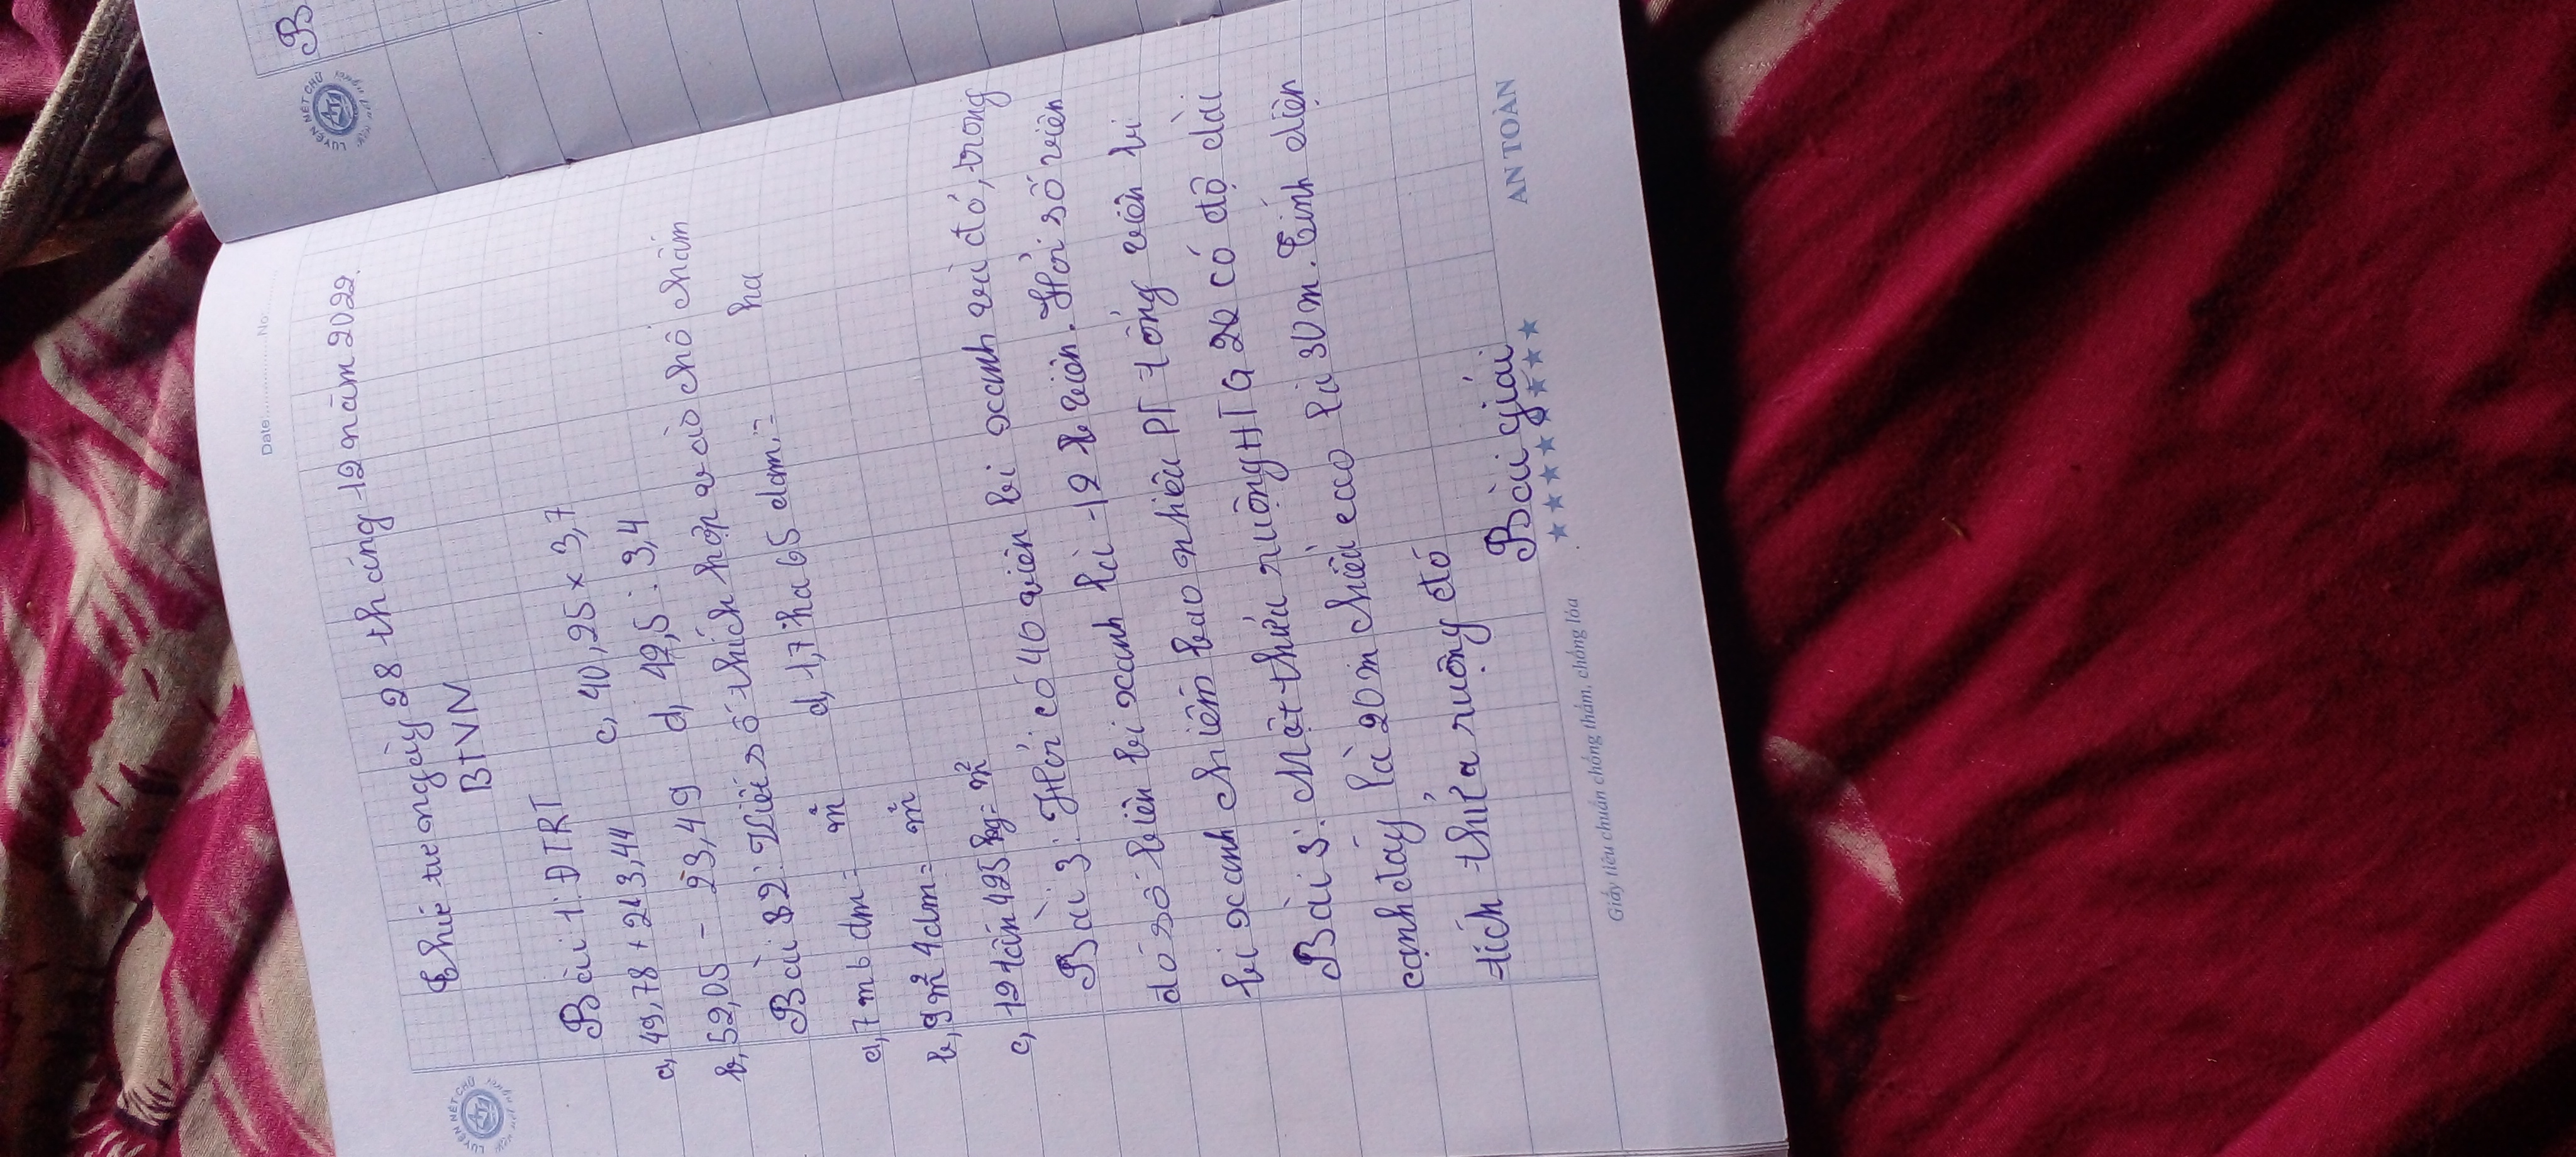 Date: No:
LUYỆN NÉT CHỮ
Thứ tư ngày 28 tháng 12 năm 2022
BTVN
Bài 1: ĐTRT
a, 49,78 + 213,44 c, 40,25 x 3,7
b, 52,05 - 23,49 d, 42,5 : 3,4
Bài 2: Viết số thích hợp vào chỗ chấm
a, 7 m 6 dm = m d, 1,7 ha 65 dam² = ha
b, 9 m² 4 dm = m²
c, 12 tấn 425 kg = m²
Bài 3: Hỏi có 40 viên bi xanh và đỏ, trong
đó số biên bi xanh là 12 viên. Hỏi số viên
bi xanh chiếm bao nhiêu PT tổng viên bi
Bài 3: Một thửa ruộng HTG có độ dài
cạnh đáy là 20m chiều cao là 30m. Tính diện
tích thửa ruộng đó
Bài giải
Giấy tiêu chuẩn chống thấm, chống lóa
AN TOÀN
LUYỆN NÉT CHỮ
B